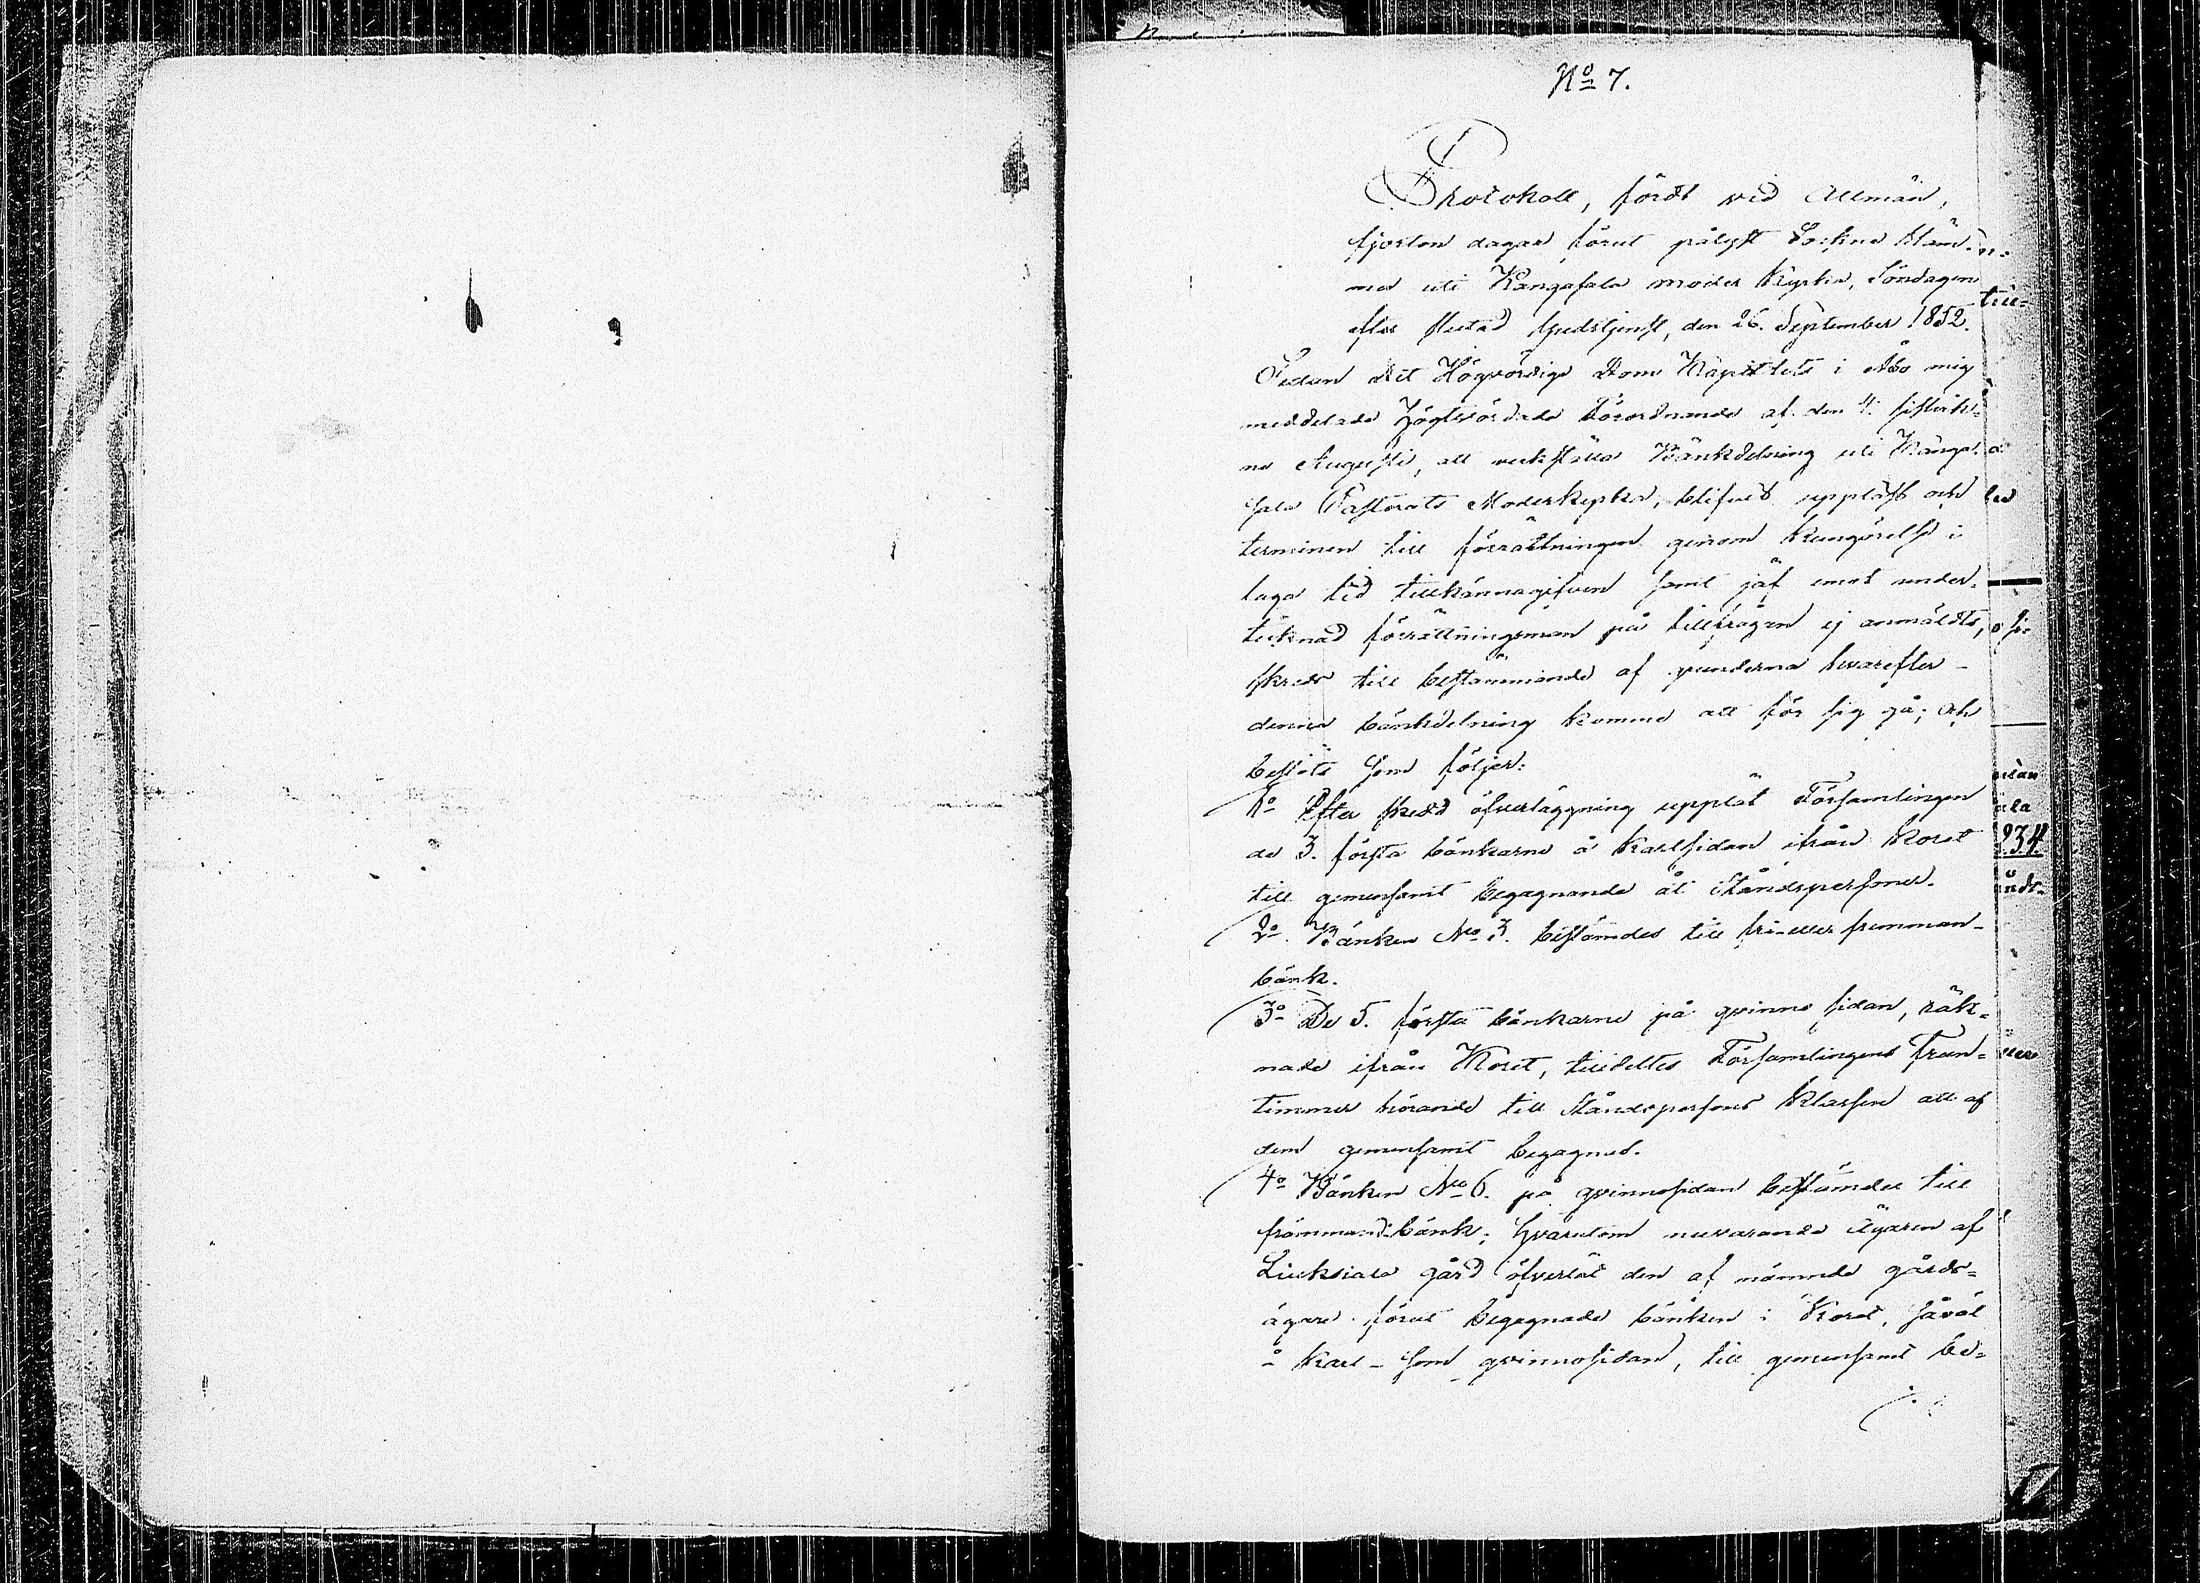 No 7.
Protokoll, fördt vid Allmän,
fjorton dagar förut pålyst Sockne stäm-
ma uti Kangasala moder Kyrka, Söndagen
efter slutad Gudstjenst, den 26. September 1852.
Sedan det Högvördige Dom Kapitlets i Åbo mig
meddelade Högtvördade Förordnande af den 4. sistlidt-
ne Augusti, att verkställa Bänkdelning uti Kanga-
sala Pastorats Moderkyrka, blifvit uppläst och
terminen till förrättningen genom Kungörelse i
laga tid tillkännagifven samt jäf emot under-
tecknad förrättningsman på tillfrågan ej anmäldts,
skreds till bestämmande af grunderna hvarefter
denna bänkdelning komme att för sig gå; och
beslöts som följer:
1o Efter skedd öfverläggning upplät Församlingen
de 3. första bänkarne å Karlsidan ifrån Koret
till gemensamt begagnande åt Ståndspersoner.
2o Bänken No 3. bestämdes till fri- eller fremman-
bänk.
3o De 5. första bänkarne på qvinno sidan, räk-
nade ifrån Koret, tilldeltes Församlingens Frun-
timmer hörande till Ståndspersons Klassen att af
dem gemensamt begagnas.
4o Bänken No 6. på qvinnosidan bestämdes till
främmand-bänk; hvarutom nuvarande ägaren af
Liuksiala gård öfverlät den af nämnde gårds-
ägare förut begagnade bänken i Koret, såväl
å Karl- som qvinnosidan, till gemensamt be-